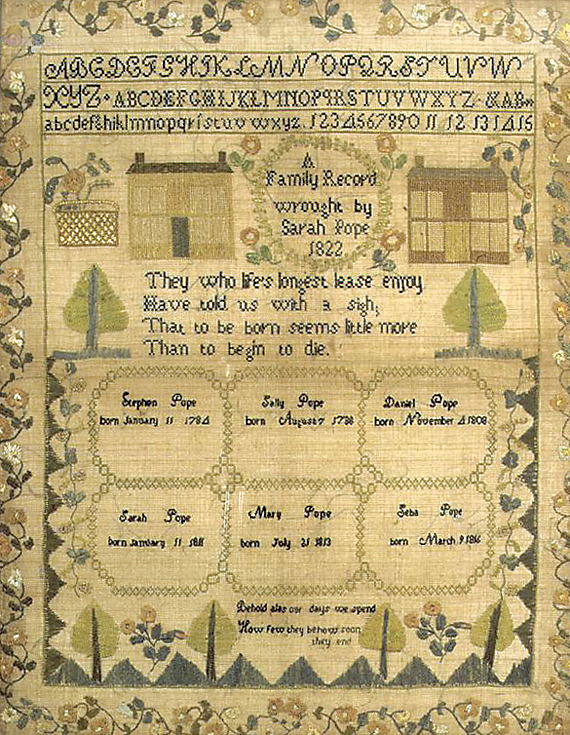 ABCDEFGHIKLMNOPQRSTUVW
XYZ. ABCDEFGHIJKLMNOPQRSTUVWXYZ. &AB
abcdefghiklmnopqrſstuvwxyz. 1234567890 11 12 13 14 15
A
Family Record
wrought by
Sarah Pope
1822
They who life's longest lease enjoy
Have told us with a sigh;
That to be born seems little more
Than to begin to die.
Stephen Pope
born January 11 1784
Sally Pope
born August 7 1788
Daniel Pope
born November 4 1808
Sarah Pope
born January 11 1811
Mary Pope
born July 21 1813
Seba Pope
born March 9 1816
Behold alas our days we spend
How few they be how soon
they end